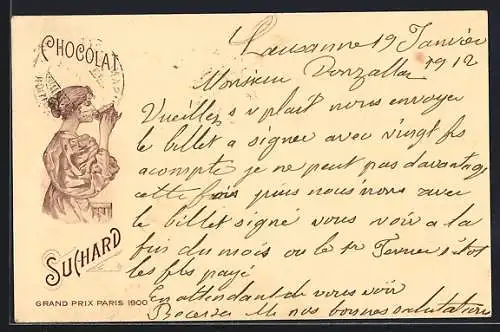 CHOCOLAT
SUCHARD
GRAND PRIX PARIS 1900
Lausanne 19 Janvier
1912
Monsieur Donzallaz
Vueillez s v plait nous envoyer
le billet a signer avec vingt frs
acompte je ne peut pas davantage
cette fois puis nous nous avec
le billet signé vous voir a la
fin du mois ou le 1r Fevrier sitot
les frs payé
En attendant de vous voir
Recevez Mr nos bonnes salutations